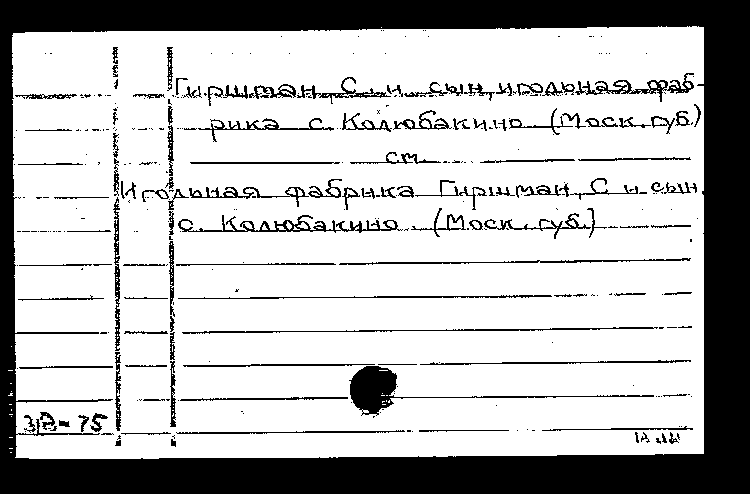 Гиршман, С. и сын, игольная фаб-
рика с. Колюбакино (Моск. губ.)
см.
Игольная фабрика Гиршман, С и сын.
с. Колюбакино. (Моск. губ.)
75